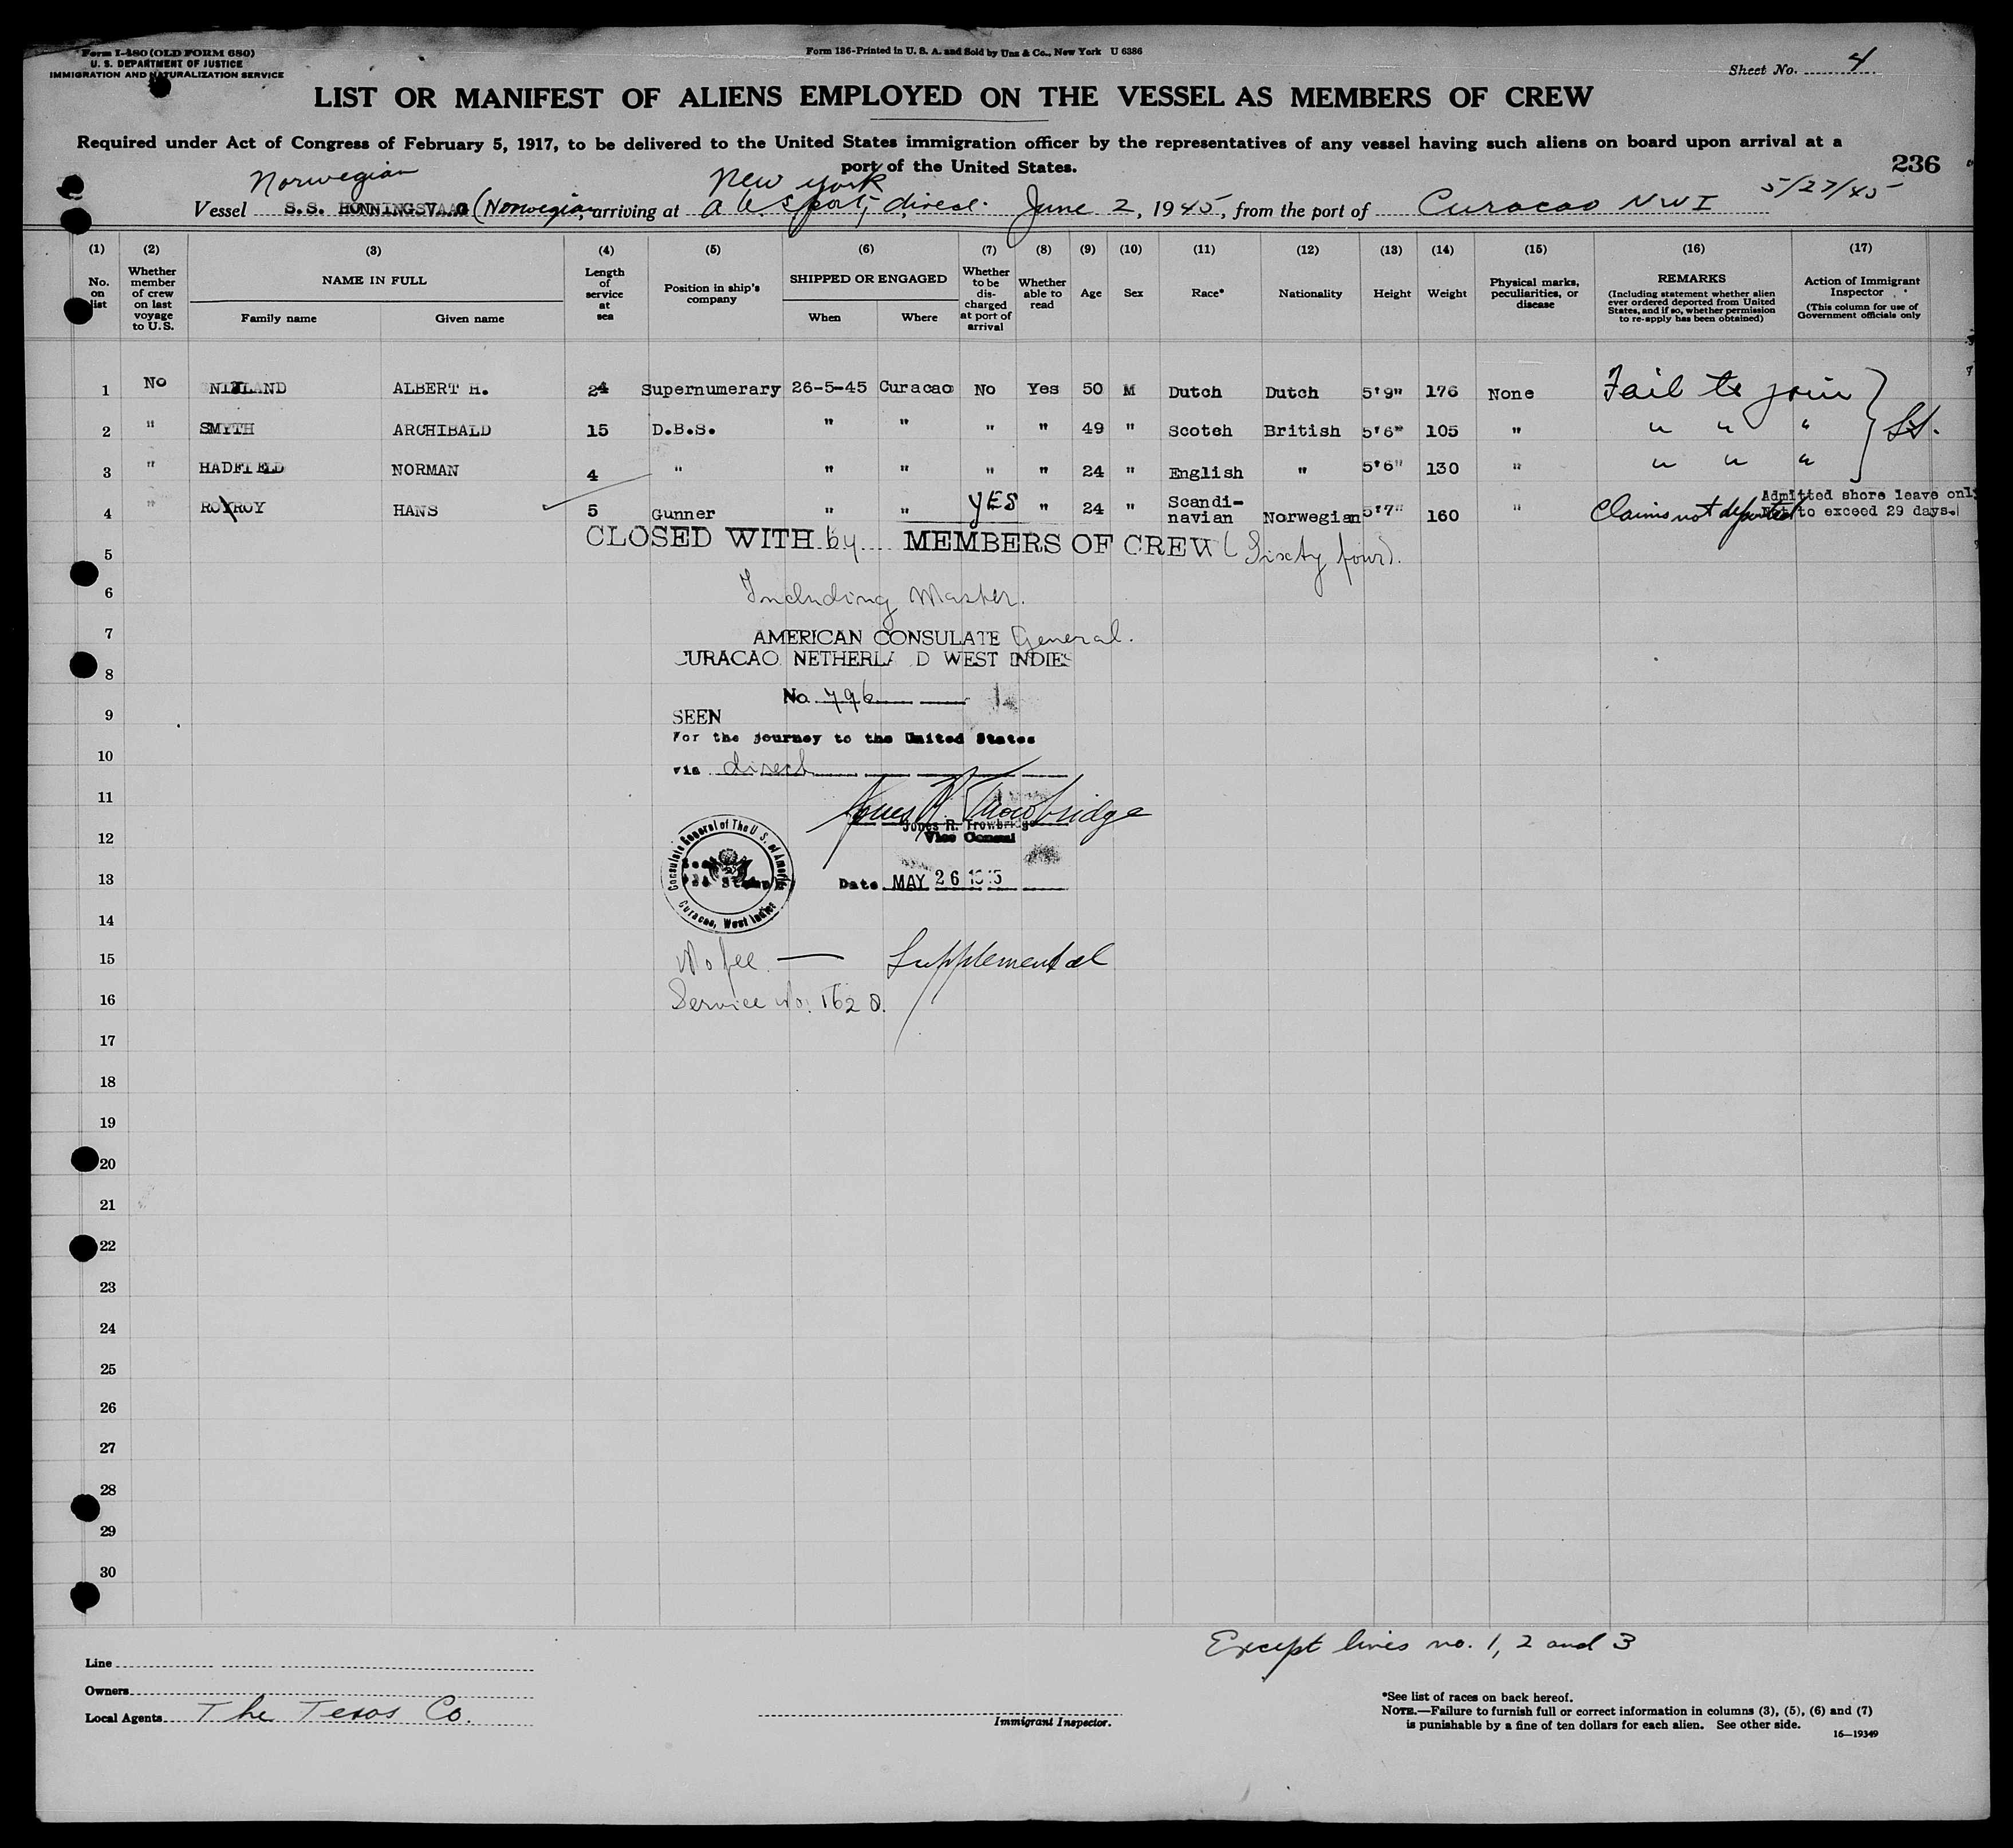 Form I-480 (OLD FORM 680)
U. S. DEPARTMENT OF JUSTICE
IMMIGRATION AND NATURALIZATION SERVICE
Form 136-Printed in U. S. A. and Sold by Unz & Co., New York U 6386
Sheet No. 4
LIST OR MANIFEST OF ALIENS EMPLOYED ON THE VESSEL AS MEMBERS OF CREW
Required under Act of Congress of February 5, 1917, to be delivered to the United States immigration officer by the representatives of any vessel having such aliens on board upon arrival at a
port of the United States.
236
Norwegian New York 5/27/45
Vessel S.S. HONNINGSVAAG (Norwegian, arriving at a U.S port, direct. June 2, 1945, from the port of Curacao NWI
(1) (2) (3) (4) (5) (6) (7) (8) (9) (10) (11) (12) (13) (14) (15) (16) (17)
No. on list
Whether member of crew on last voyage to U. S.
NAME IN FULL
Family name Given name
Length of service at sea
Position in ship's company
SHIPPED OR ENGAGED
When Where
Whether to be discharged at port of arrival
Whether able to read
Age
Sex
Race*
Nationality
Height
Weight
Physical marks, peculiarities, or disease
REMARKS
(Including statement whether alien ever ordered deported from United States, and if so, whether permission to re-apply has been obtained)
Action of Immigrant Inspector
(This column for use of Government officials only
1 No ALBERT H. 24 Supernumerary 26-5-45 Curacao No Yes 50 M Dutch Dutch 5'9" 176 None Fail to join
2 " SMYTH ARCHIBALD 15 D.B.S. " " " " 49 " Scotch British 5'6" 105 " " " "
3 " HADFIELD NORMAN 4 " " " " " 24 " English " 5'6" 130 " " " "
4 " ROYROY HANS 5 Gunner " " YES " 24 " Scandinavian Norwegian 5'7" 160 " Claims not deported Admitted shore leave only
Not to exceed 29 days.
CLOSED WITH 64 MEMBERS OF CREW (Sixty four).
5
6 Including Master.
7 AMERICAN CONSULATE General.
CURACAO NETHERLAND WEST INDIES
8
No. 796
9 SEEN
For the journey to the United States
10 via direct
11
Jones R. Trowbridge
Jones R. Trowbridge
12 Vice Consul
Consulate General of The U. S. of America
Curacao, West Indies
13 Date MAY 26 1945
14
15 No fee — Supplemental
16 Service No. 1628.
17
18
19
20
21
22
23
24
25
26
27
28
29
30
Except lines no. 1, 2 and 3
Line
Owners
Local Agents The Texas Co.
Immigrant Inspector.
*See list of races on back hereof.
NOTE.—Failure to furnish full or correct information in columns (3), (5), (6) and (7)
is punishable by a fine of ten dollars for each alien. See other side.
16—19349